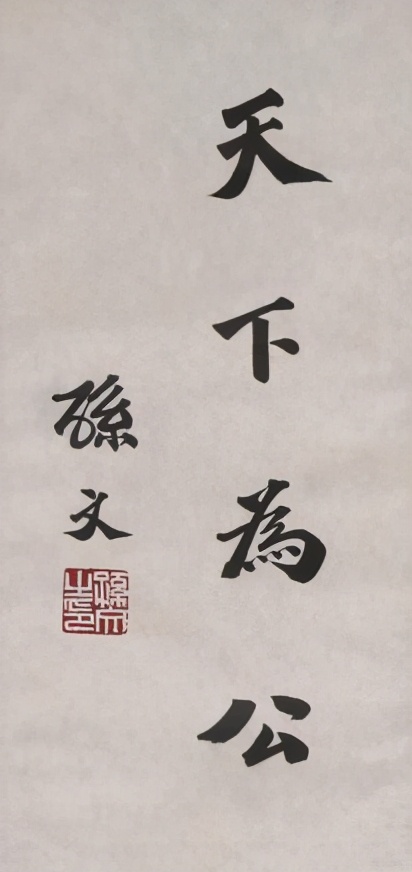 天下為公
孫文
孫文之印